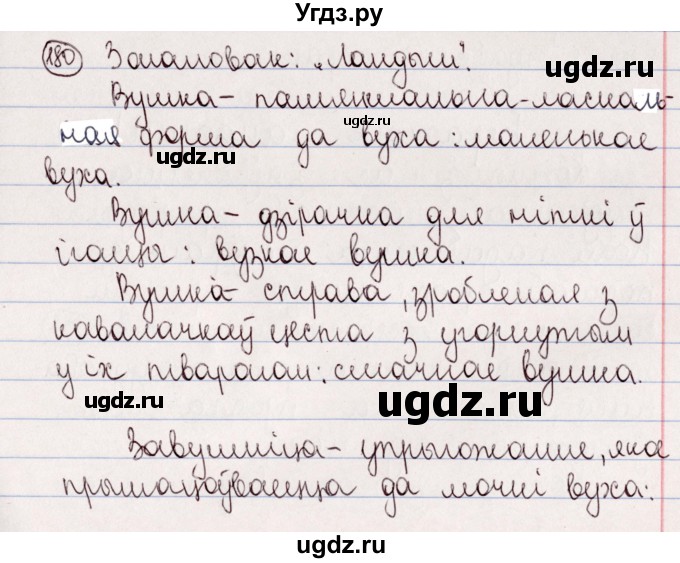 Угдз.ру
180 Загаловак: „Ландыш".
Вушка – памяншальна-ласкаль-
ная форма да вуха: маленькае
вуха.
Вушка – дзірачка для ніткі ў
іголцы: вузкае вушка.
Вушка – страва, зробленая з
кавалачкаў цеста з угорнутым
у іх тварагом: смачнае вушка.
Завушніца – упрыгожанне, якое
прымацоўваецца да мочкі вуха:
ugdz.ru
ugdz.ru
ugdz.ru
ugdz.ru
ugdz.ru
ugdz.ru
ugdz.ru
ugdz.ru